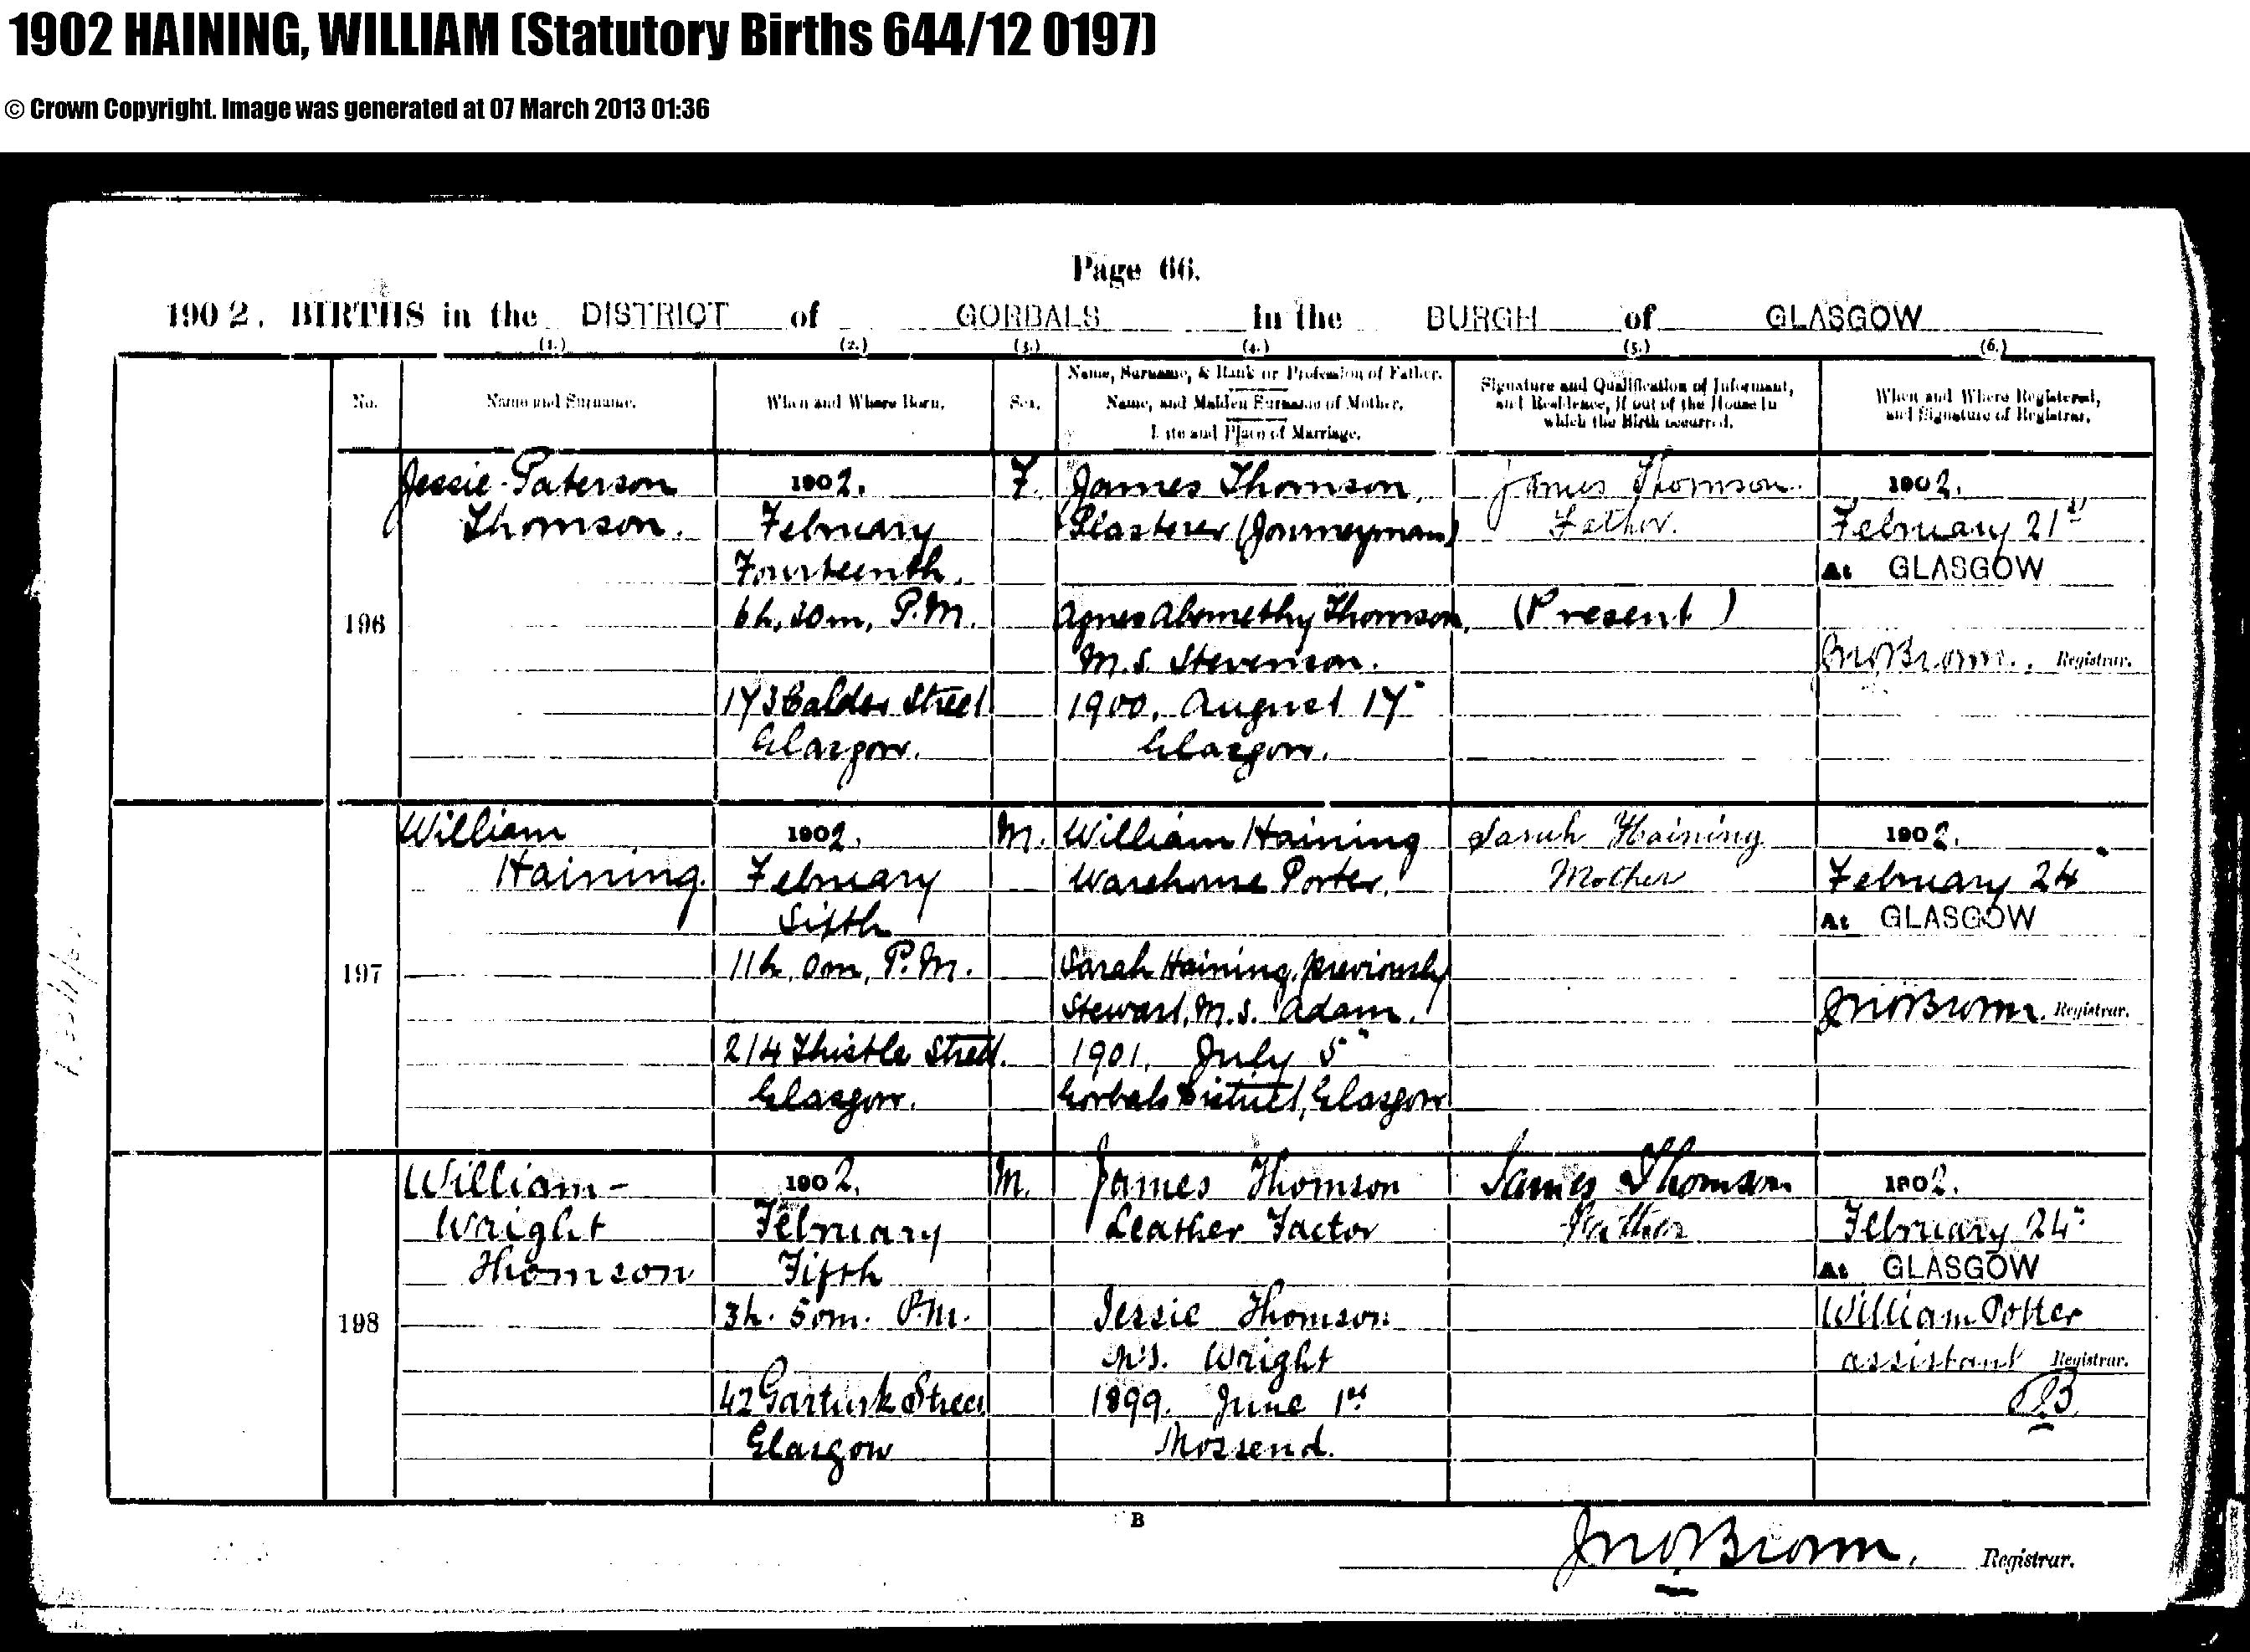 1902 HAINING, WILLIAM (Statutory Births 644/12 0197)
© Crown Copyright. Image was generated at 07 March 2013 01:36
Page 66.
1902. BIRTHS in the DISTRICT of GORBALS in the BURGH of GLASGOW
(1.) (2.) (3.) (4.) (5.) (6.)
No.
Name and Surname.
When and Where Born.
Sex.
Name, Surname, & Rank or Profession of Father.
Name, and Maiden Surname of Mother.
Date and Place of Marriage.
Signature and Qualification of Informant,
and Residence, if out of the House in
which the Birth occurred.
When and Where Registered,
and Signature of Registrar.
196
Jessie Paterson
Thomson.
1902.
February
Fourteenth.
6h, 30m, P.M.
173 Calder Street
Glasgow.
F.
James Thomson,
Plasterer (Journeyman)
Agnes Abernethy Thomson,
M.S. Stevenson.
1900. August 17"
Glasgow.
James Thomson.
Father.
(Present)
1902.
February 21st
At GLASGOW
Jno Brown. Registrar.
197
William
Haining.
1902.
February
Sixth
11h, 0m, P.M.
214 Thistle Street.
Glasgow.
M.
William Haining
Warehouse Porter.
Sarah Haining, previously
Stewart, M.S. Adam.
1901. July 5"
Gorbals District, Glasgow
Sarah Haining
Mother
1902.
February 24"
At GLASGOW
Jno Brown. Registrar.
198
William-
Wright
Thomson
1902.
February
Fifth
3h. 50m. P.M.
42 Garturk Street
Glasgow
M.
James Thomson
Leather Factor
Jessie Thomson
M.S. Wright
1899. June 1st
Mossend.
James Thomson
Father
1902.
February 24"
At GLASGOW
William Potter
assistant Registrar.
B
Jno Brown. Registrar.